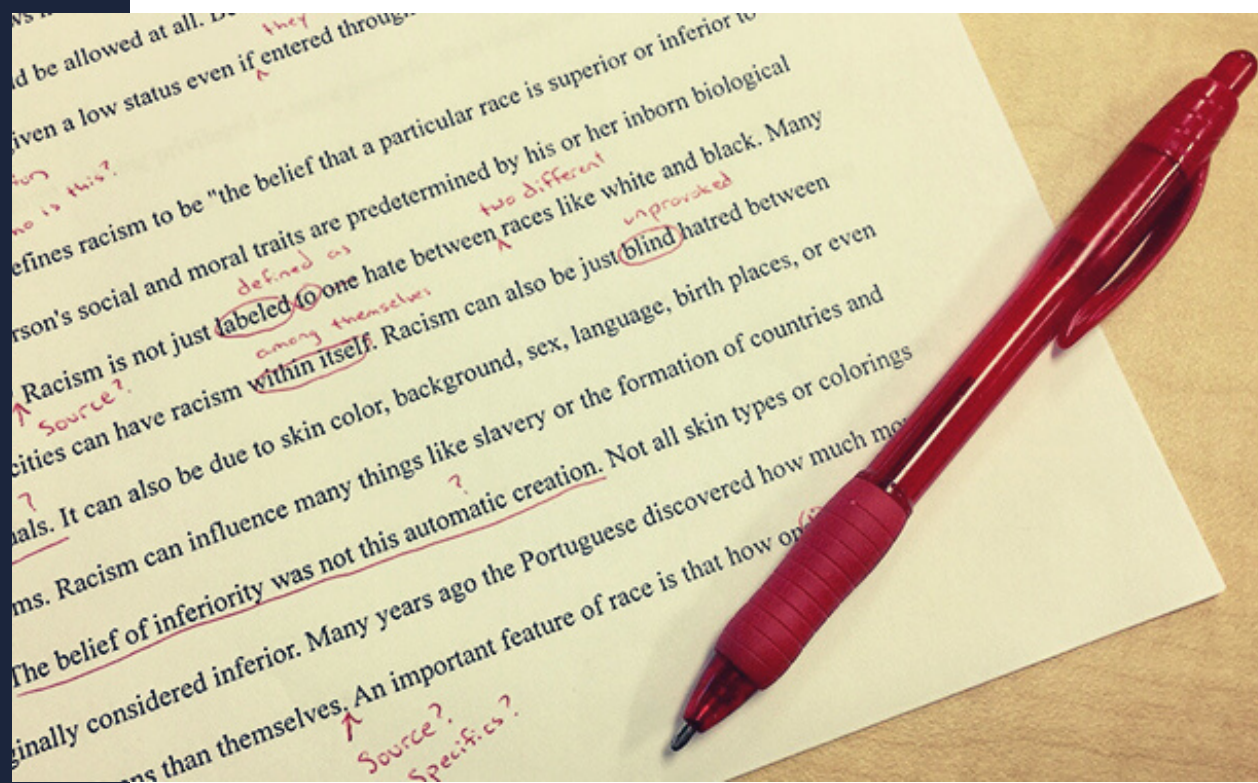 d be allowed at all.
they
given a low status even if entered through
who is this?
defines racism to be "the belief that a particular race is superior or inferior to
rson's social and moral traits are predetermined by his or her inborn biological
defined as
two different
Racism is not just labeled to one hate between races like white and black. Many
Source?
among themselves
unprovoked
cities can have racism within itself. Racism can also be just blind hatred between
?
als. It can also be due to skin color, background, sex, language, birth places, or even
ms. Racism can influence many things like slavery or the formation of countries and
?
The belief of inferiority was not this automatic creation. Not all skin types or colorings
ginally considered inferior. Many years ago the Portuguese discovered how much
ns than themselves. An important feature of race is that how
Source?
Specifics?